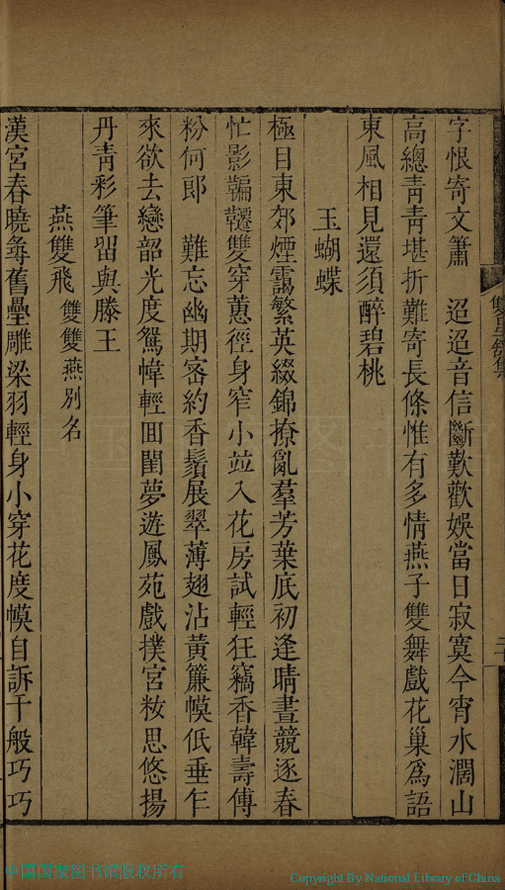 字恨寄文簫　迢迢音信斷歎歡娛當日寂寞今宵水濶山
高總青青堪折難寄長條惟有多情燕子雙舞戲花巢爲語
東風相見還須醉碧桃
玉蝴蝶
極目東郊煙靄繁英綴錦撩亂羣芳葉底初逢晴晝競逐春
忙影翩韆雙穿蕙徑身窄小竝入花房試輕狂竊香韓壽傅
粉何郎　難忘幽期密約香鬚展翠薄翅沾黃簾幙低垂乍
來欲去戀韶光度鴛幃輕囘閨夢遊鳳苑戲撲宮妝思悠揚
丹靑彩筆留與滕王
燕雙飛　雙雙燕別名
漢宮春曉尋舊壘雕梁羽輕身小穿花度幙自訴千般巧巧
中国国家图书馆版权所有
Copyright By National Library of China